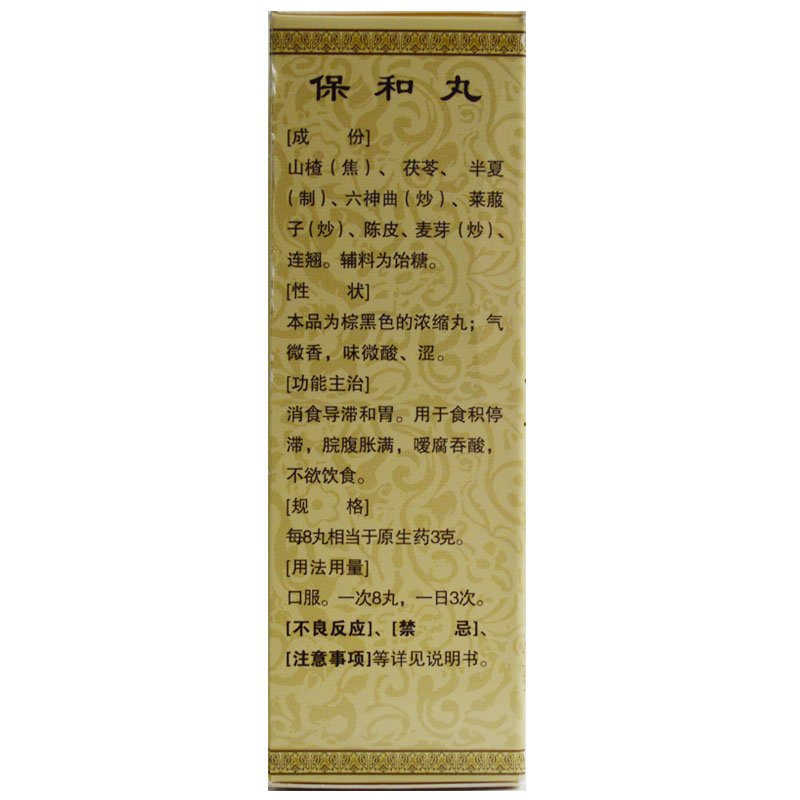 保和丸
[成　份]
山楂（焦）、茯苓、半夏
（制）、六神曲（炒）、莱菔
子（炒）、陈皮、麦芽（炒）、
连翘。辅料为饴糖。
[性　状]
本品为棕黑色的浓缩丸；气
微香，味微酸、涩。
[功能主治]
消食导滞和胃。用于食积停
滞，脘腹胀满，嗳腐吞酸，
不欲饮食。
[规　格]
每8丸相当于原生药3克。
[用法用量]
口服。一次8丸，一日3次。
[不良反应]、[禁　忌]、
[注意事项]等详见说明书。